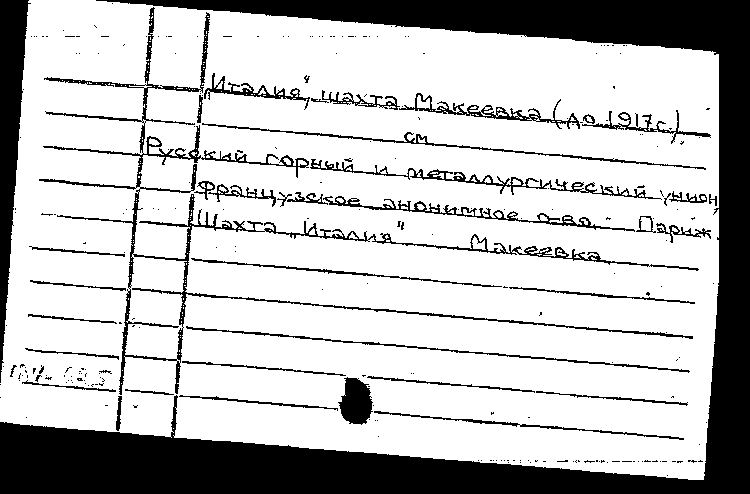 „Италия", шахта Макеевка (до 1917г.).
см
Русский горный и металлургический унион,
французское анонимное о-во. Париж.
Шахта „Италия" Макеевка